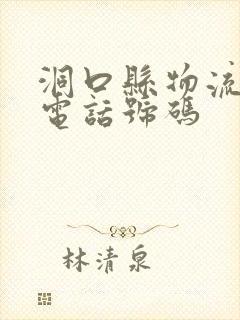 洞口縣物流
電話號碼
林清泉